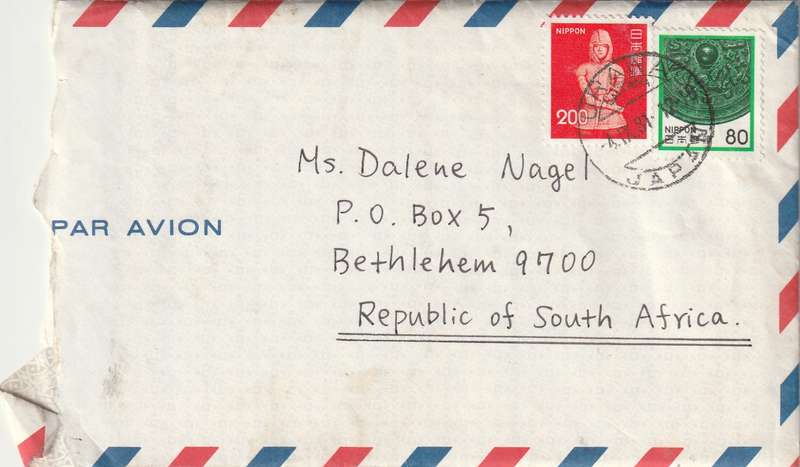 NIPPON
日本郵便
200
NIPPON
日本郵便
80
JAPAN
Ms. Dalene Nagel
P.O. Box 5,
PAR AVION
Bethlehem 9700
Republic of South Africa.